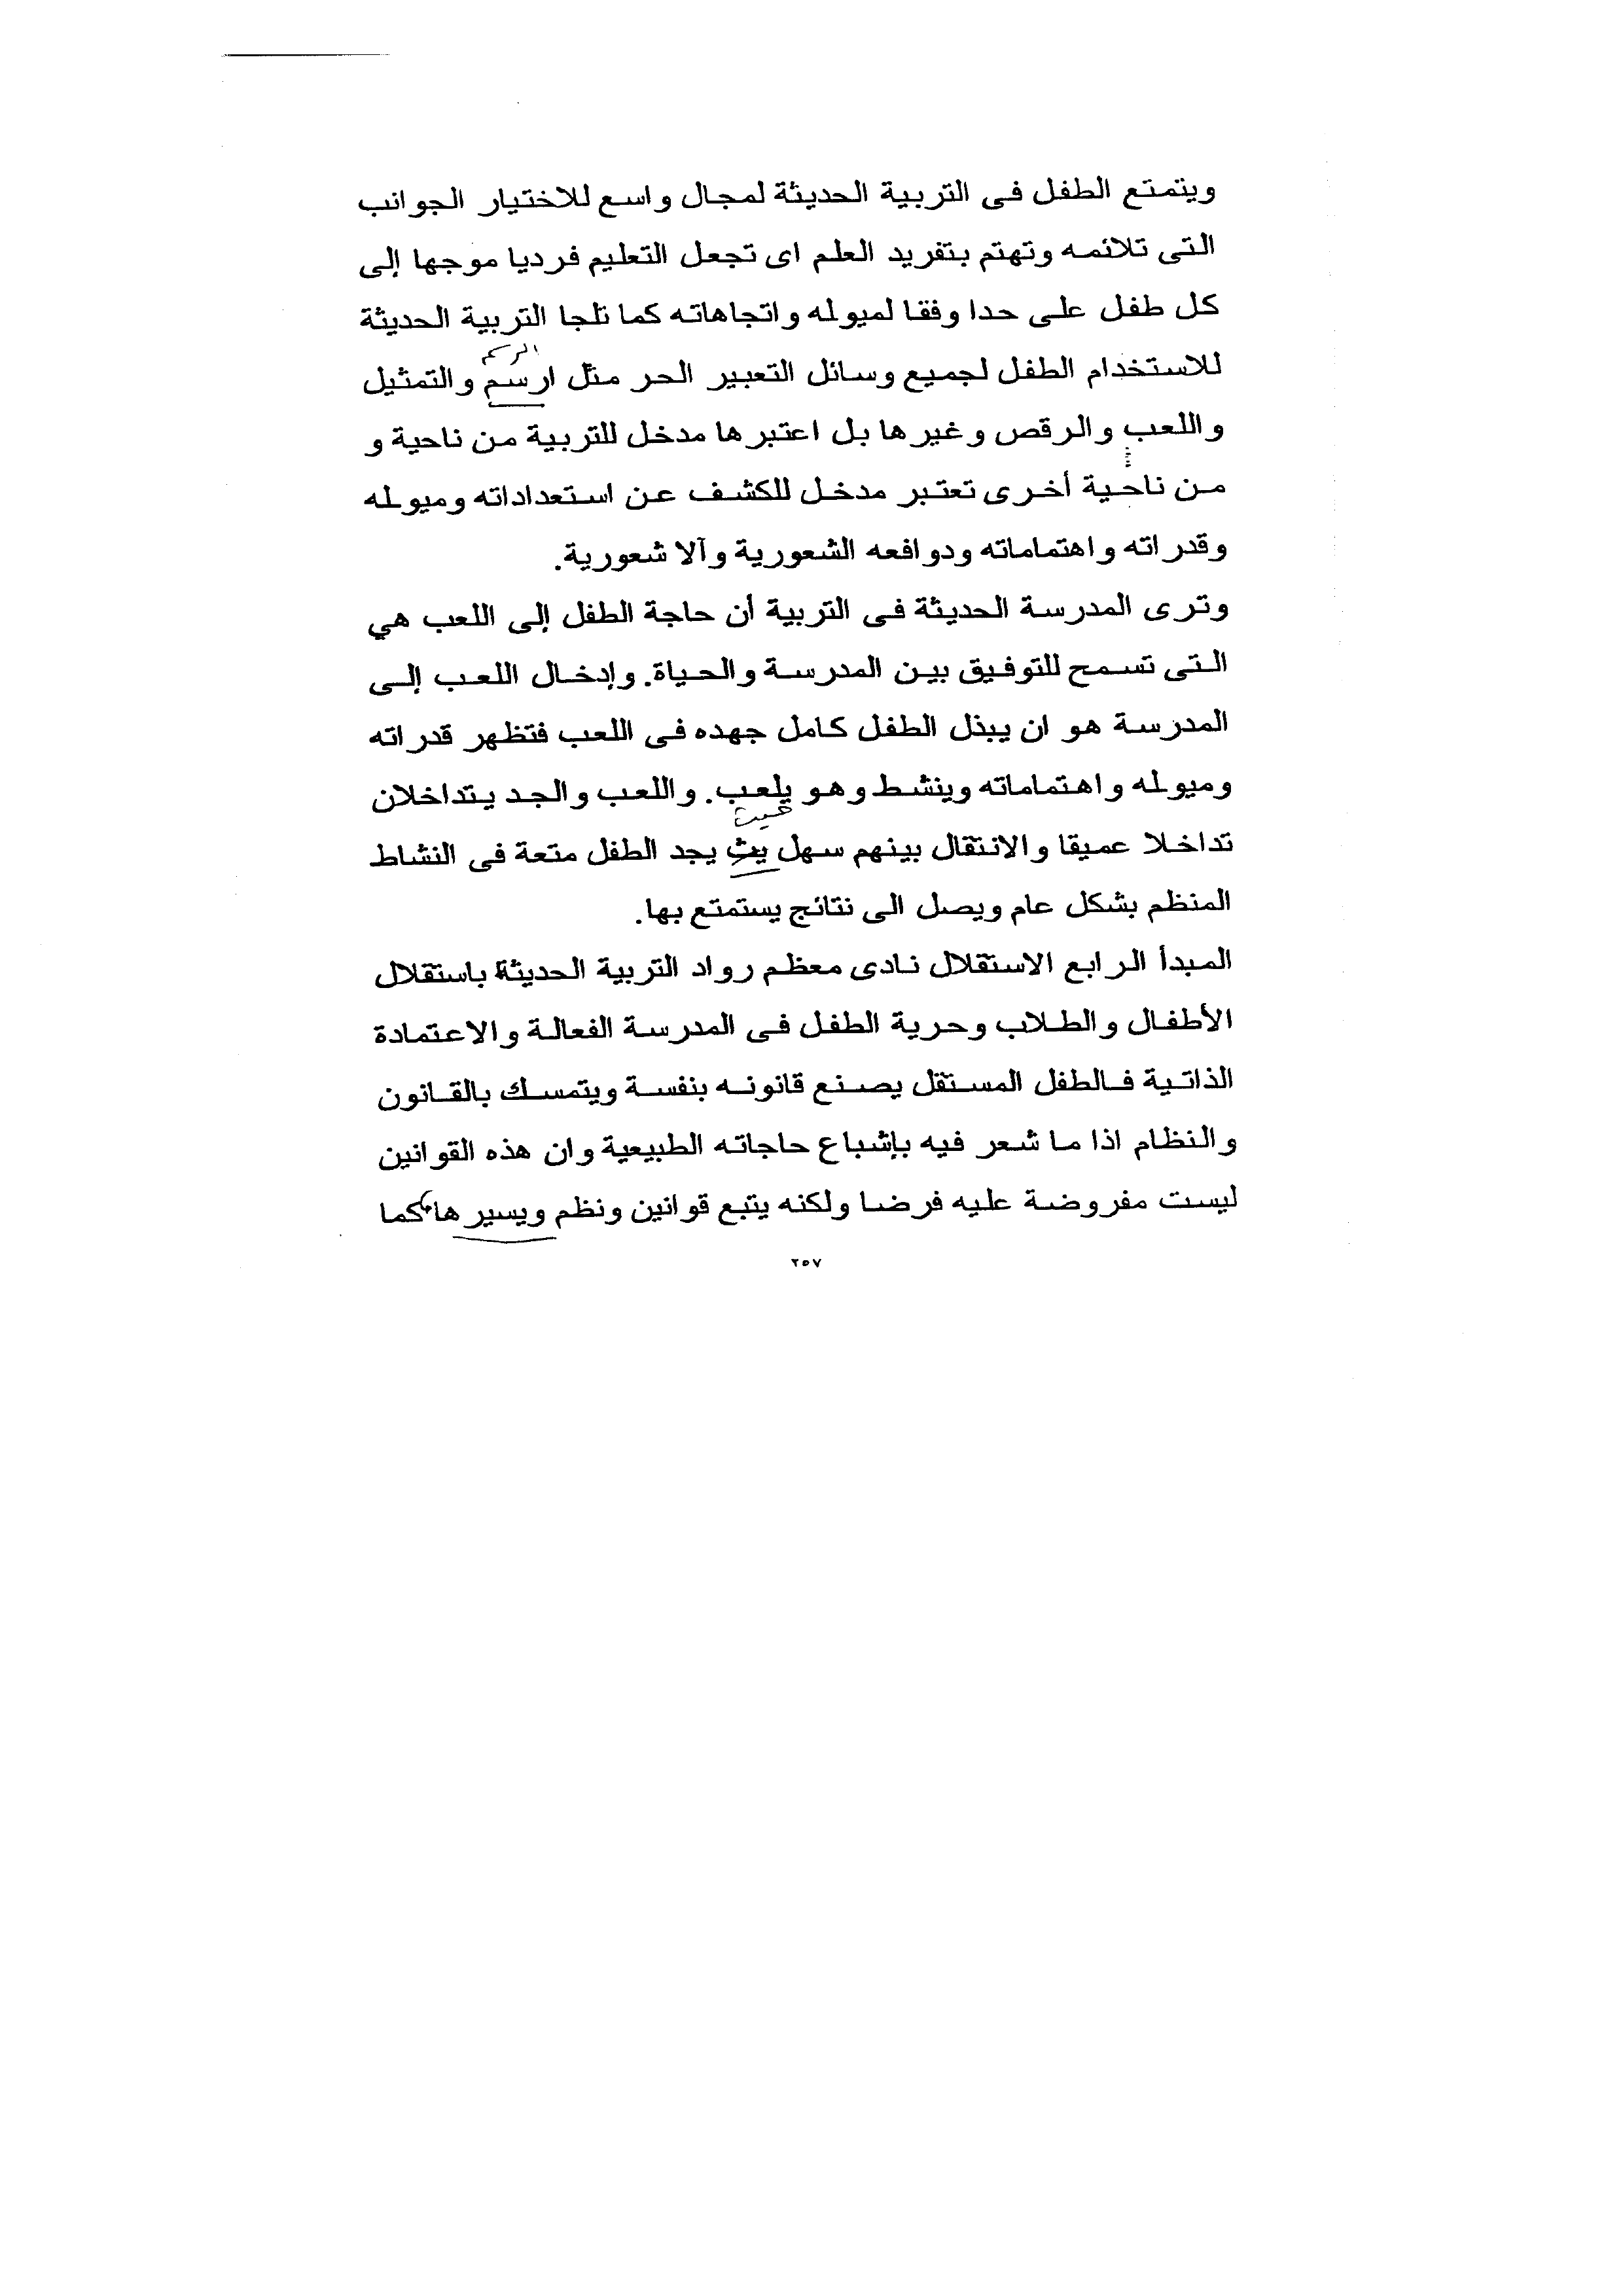 ويتمتع الطفل فى التربية الحديثة لمجال واسع للاختيار الجوانب
التى تلائمه وتهتم بتفريد العلم اى تجعل التعليم فرديا موجها إلى
كل طفل على حدا وفقا لميوله واتجاهاته كما تلجا التربية الحديثة
الرسم
للاستخدام الطفل لجميع وسائل التعبير الحر مثل ارسم والتمثيل
واللعب والرقص وغيرها بل اعتبرها مدخل للتربية من ناحية و
من ناحية أخرى تعتبر مدخل للكشف عن استعداداته وميوله
وقدراته واهتماماته ودوافعه الشعورية وآلا شعورية.
وترى المدرسة الحديثة فى التربية أن حاجة الطفل إلى اللعب هي
التى تسمح للتوفيق بين المدرسة والحياة. وإدخال اللعب إلى
المدرسة هو ان يبذل الطفل كامل جهده فى اللعب فتظهر قدراته
وميوله واهتماماته وينشط وهو يلعب. واللعب والجد يتداخلان
تداخلا عميقا والانتقال بينهم سهل يث يجد الطفل متعة فى النشاط
المنظم بشكل عام ويصل الى نتائج يستمتع بها.
المبدأ الرابع الاستقلال نادى معظم رواد التربية الحديثة باستقلال
الأطفال والطلاب وحرية الطفل فى المدرسة الفعالة والاعتمادة
الذاتية فالطفل المستقل يصنع قانونه بنفسة ويتمسك بالقانون
والنظام اذا ما شعر فيه بإشباع حاجاته الطبيعية وان هذه القوانين
ليست مفروضة عليه فرضا ولكنه يتبع قوانين ونظم ويسيرها كما
٢٥٧